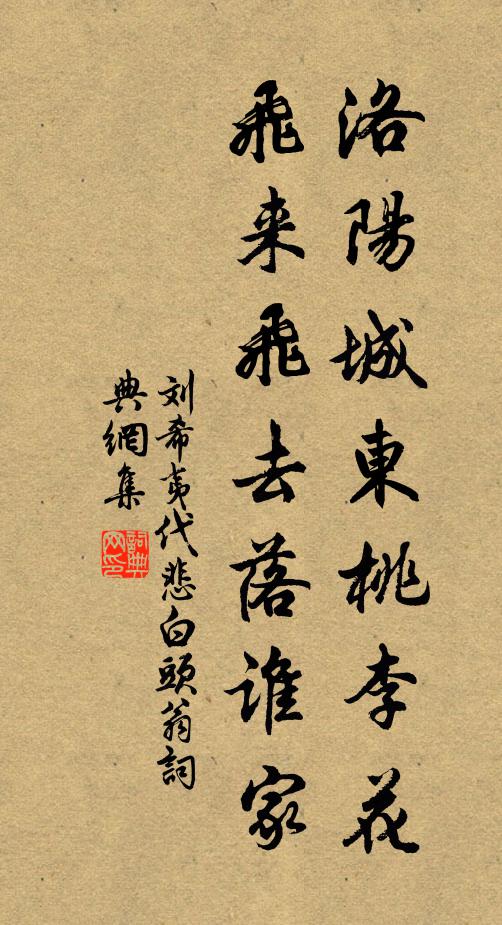 洛陽城東桃李花
飛来飛去落誰家
刘希夷代悲白頭翁詞
典網集
詞典网印